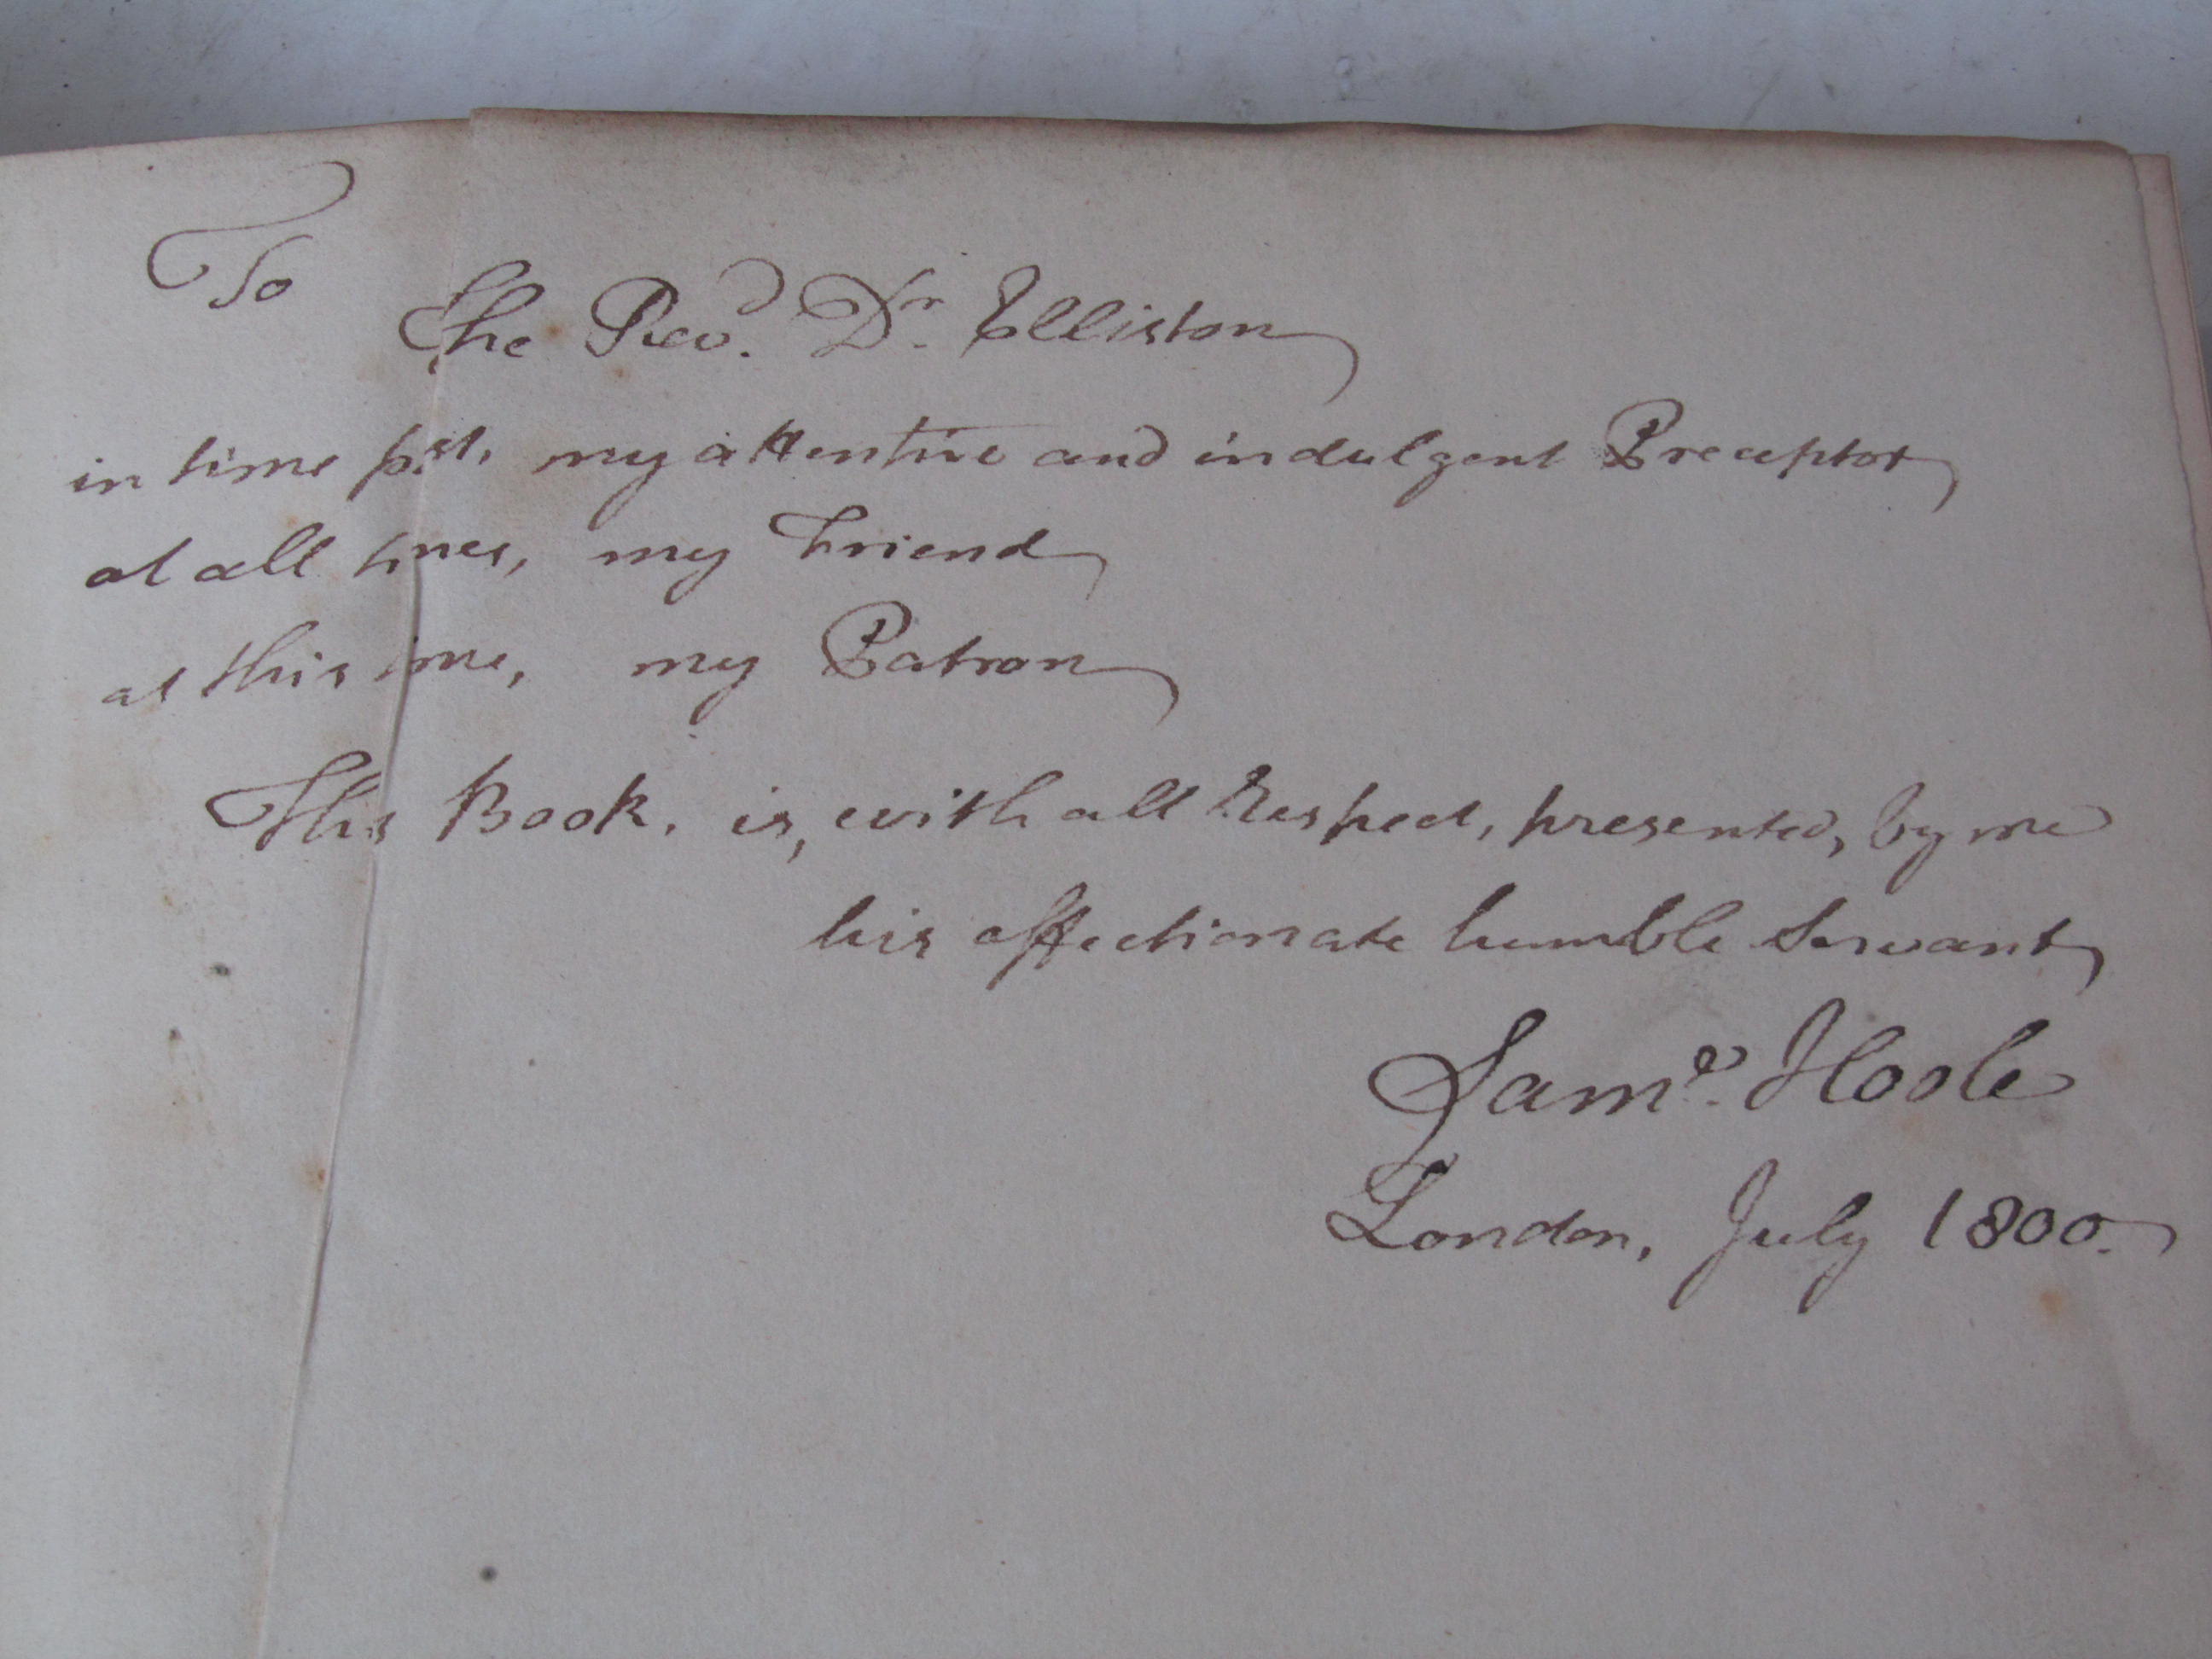 To
The Revd. Dr. Elliston
in time pst, my attentive and indulgent Preceptor
at all times, my Friend
at this time, my Patron
This Book, is, with all Respect, presented, by me
his affectionate humble Servant
Saml. Hoole
London, July 1800.